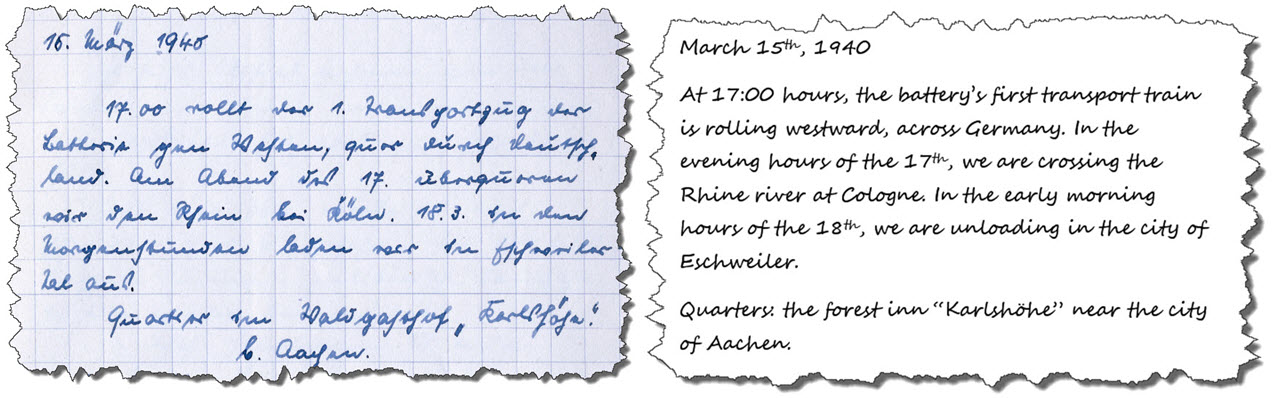 15. März 1940
17.00 rollt der 1. Transportzug der
Batterie gen Westen, quer durch Deutsch-
land. Am Abend des 17. überqueren
wir den Rhein bei Köln. 18.3. in den
Morgenstunden laden wir in Eschweiler
Tal aus.
Quartier im Waldgasthof „Karlshöhe".
b. Aachen.
March 15th, 1940
At 17:00 hours, the battery's first transport train
is rolling westward, across Germany. In the
evening hours of the 17th, we are crossing the
Rhine river at Cologne. In the early morning
hours of the 18th, we are unloading in the city of
Eschweiler.
Quarters: the forest inn "Karlshöhe" near the city
of Aachen.